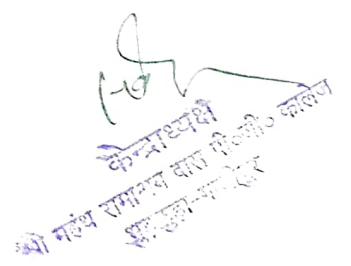 केन्द्राध्यक्ष
श्री महंथ रामाश्रय दास पी०जी० कालेज
भुड़कुड़ा-गाजीपुर